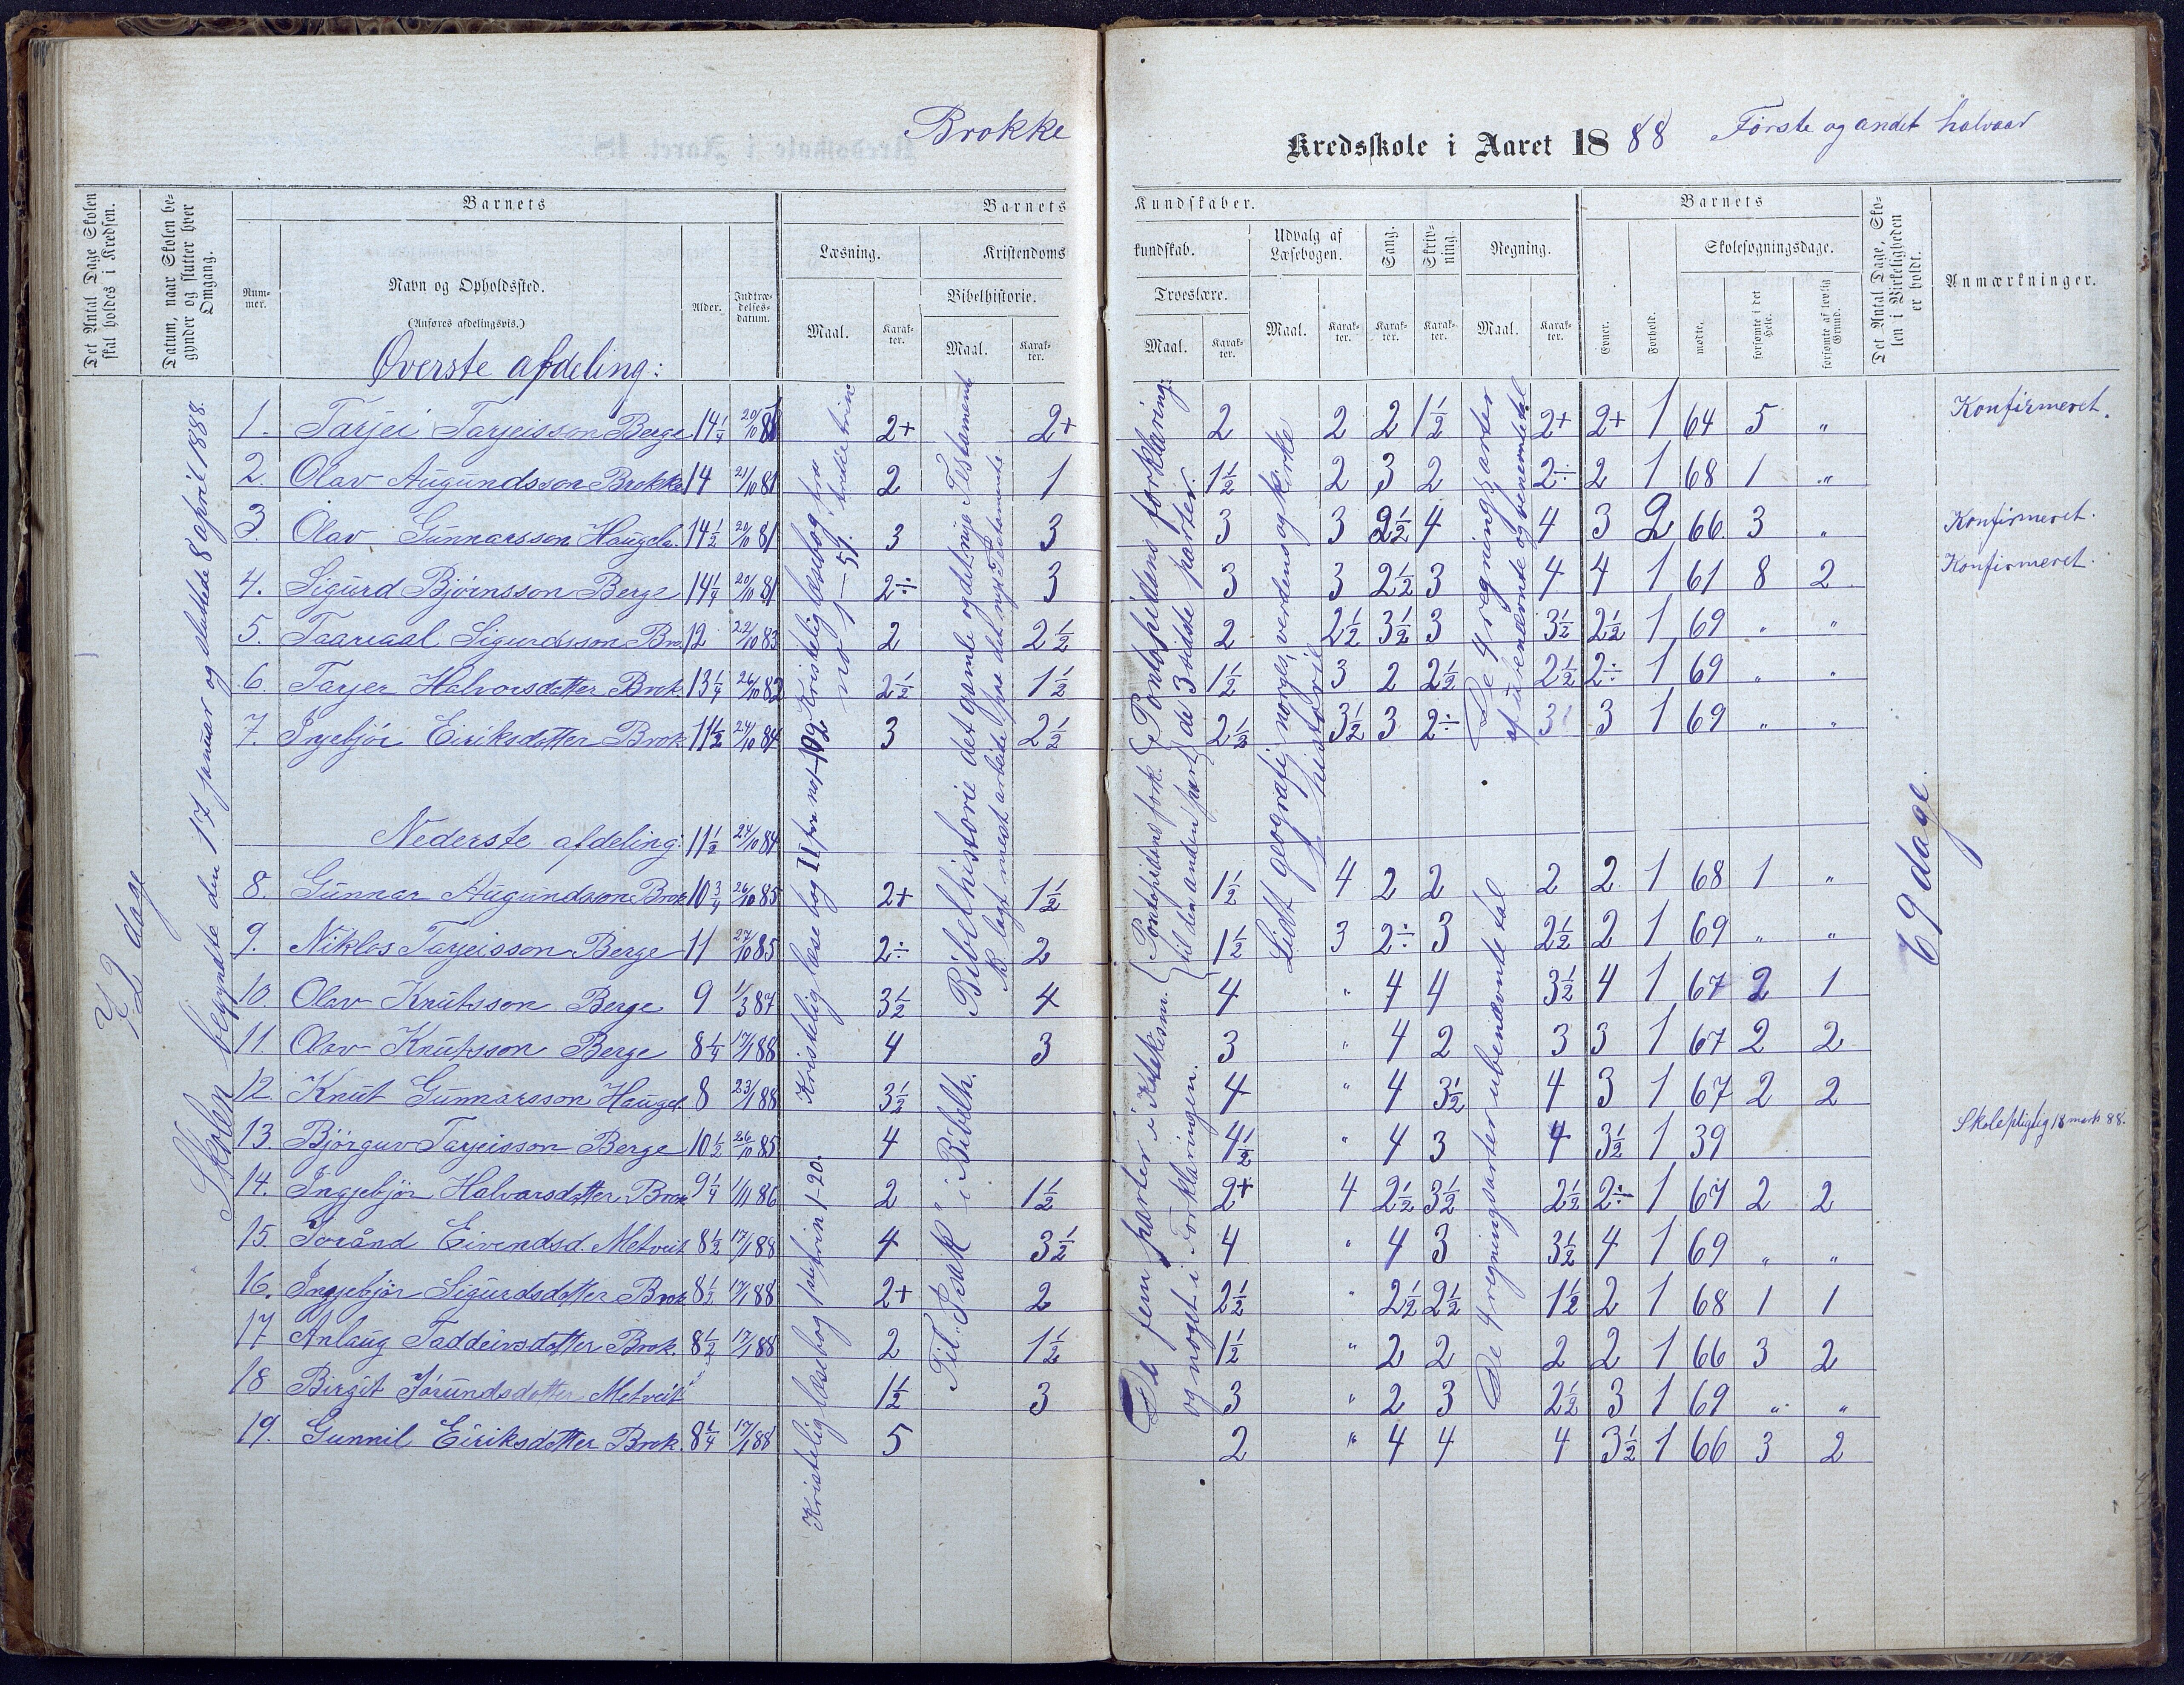 Brokke
Kredsskole i Aaret 1888 Første og andet halvaar
Det Antal Dage Skolen skal holdes i Kredsen.
Datum, naar Skolen begynder og slutter hver Omgang.
Barnets
Nummer.
Navn og Opholdssted.
(Anføres afdelingsvis.)
Alder.
Indtrædelsesdatum.
Barnets Kundskaber.
Læsning.
Maal.
Karakter.
Kristendomskundskab.
Bibelhistorie.
Maal.
Karakter.
Troeslære.
Maal.
Karakter.
Udvalg af Læsebogen.
Maal.
Karakter.
Sang.
Karakter.
Skrivning.
Karakter.
Regning.
Maal.
Karakter.
Barnets
Evner.
Forhold.
Skolesøgningsdage.
mødte.
forsømte i det Hele.
forsømte af lovlig Grund.
Det Antal Dage, Skolen i Virkeligheden er holdt.
Anmærkninger.
72 dage
Skolen begyndte den 17 januar og sluttede 8 april 1888.
Øverste afdeling:
1. Tarjei Tarjeisson Berge 14 1/4 20/10 81 2+ 2+ 2 2 2 1 1/2 2+ 2+ 1 64 5 " Konfirmeret.
2. Olav Augundsson Brokke 14 21/10 81 2 1 1 1/2 2 3 2 2÷ 2 1 68 1 "
3. Olav Gunnarsson Haugela. 14 1/2 20/10 81 3 3 3 3 2 1/2 4 4 3 2 66 3 " Konfirmeret.
4. Sigurd Bjørnsson Berge 14 1/4 20/10 81 2÷ 3 3 3 2 1/2 3 4 4 1 61 8 2 Konfirmeret.
5. Taaraal Sigurdsson Bro. 12 22/10 83 2 2 1/2 2 2 1/2 3 1/2 3 3 1/2 2 1/2 1 69 " "
6. Tarjer Halvorsdotter Brok. 13 1/4 26/10 82 2 1/2 1 1/2 1 1/2 3 2 2 1/2 2 1/2 2÷ 1 69 " "
7. Ingebjör Eiriksdotter Brok 11 1/2 24/10 84 3 2 1/2 2 1/2 3 1/2 3 2÷ 3 3 1 69 " "
Nederste afdeling: 11 1/2 24/10 84
8. Gunnar Augundsson Brok 10 3/4 26/10 85 2+ 1 1/2 1 1/2 4 2 2 2 2 1 68 1 "
9. Niklos Tarjeisson Berge 11 27/10 85 2÷ 2 1 1/2 3 2÷ 3 2 1/2 2 1 69 " "
10. Olav Knutsson Berge 9 1/3 87 3 1/2 4 4 " 4 4 3 1/2 4 1 67 2 1
11. Olav Knutsson Berge 8 1/4 17/1 88 4 3 3 " 4 2 3 3 1 67 2 2
12. Knut Gunnarsson Haugel. 8 23/1 88 3 1/2 4 " 4 3 1/2 4 3 1 67 2 2
13. Bjørguv Tarjeisson Berge 10 1/2 26/10 85 4 4 1/2 " 4 3 4 3 1/2 1 39 Skolepligtig 18 marts 88.
14. Ingjebjör Halvorsdotter Brok 9 1/4 1/11 86 2 1 1/2 2+ 4 2 1/2 3 1/2 2 1/2 2÷ 1 67 2 2
15. Joránd Eivendsd. Metveit 8 1/2 17/1 88 4 3 1/2 4 " 4 3 3 1/2 4 1 69 " "
16. Ingjebjör Sigurdsdotter Brok 8 1/2 17/1 88 2+ 2 2 1/2 " 2 1/2 2 1/2 1 1/2 2 1 68 1 1
17 Anlaug Taddeivsdotter Brok. 8 1/2 17/1 88 2 1 1/2 1 1/2 " 2 2 2 2 1 66 3 2
18 Birgit Jorundsdotter Metveit 1 1/2 3 3 " 2 3 2 1/2 3 1 69 " "
19. Gunnil Eiriksdotter Brok. 8 1/4 17/1 88 5 2 " 4 4 4 3 1/2 1 66 3 2
Kristelig læsebog fra tredie trin no 1–59.
Kristelig læsebog II fra no 1–102
Kristelig læsebog første trin 1–20.
Bibelhistorie det gamle og det nye Testament
B. lagt mest arbeide paa det nye Testamente.
Til "Isak" i Bibelh.
Pontopidans forklaring: de 3 sidste parter.
Pontopidans fork. til den anden part
De fem parter i Kateksm. og noget i Forklaringen.
Lidt geografi, norges, verdens og kirkehistorie
De 4 regningsarter af ubenævnte og benævnte tal
De 4 regningsarter ubenævnte tal
69 dage.